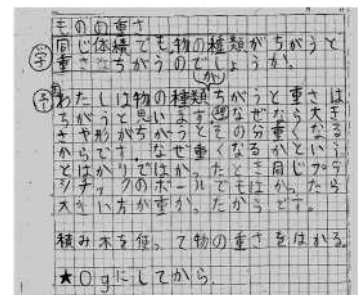 ものの重さ
学 同じ体積でも、物の種類がちがうと
重さはちがうのでしょうか。
予 わたしは物の種類がちがうと重さは
ちがうと思います。理なぜなら大き
さや形がちがうとその分重くなる
からです。なぜ重くなるかという
とはかりではかったとき同じプラ
スチックのボールでもはかったら
大きい方が重かったからです。
積み木を使って物の重さをはかる。
★0gにしてから